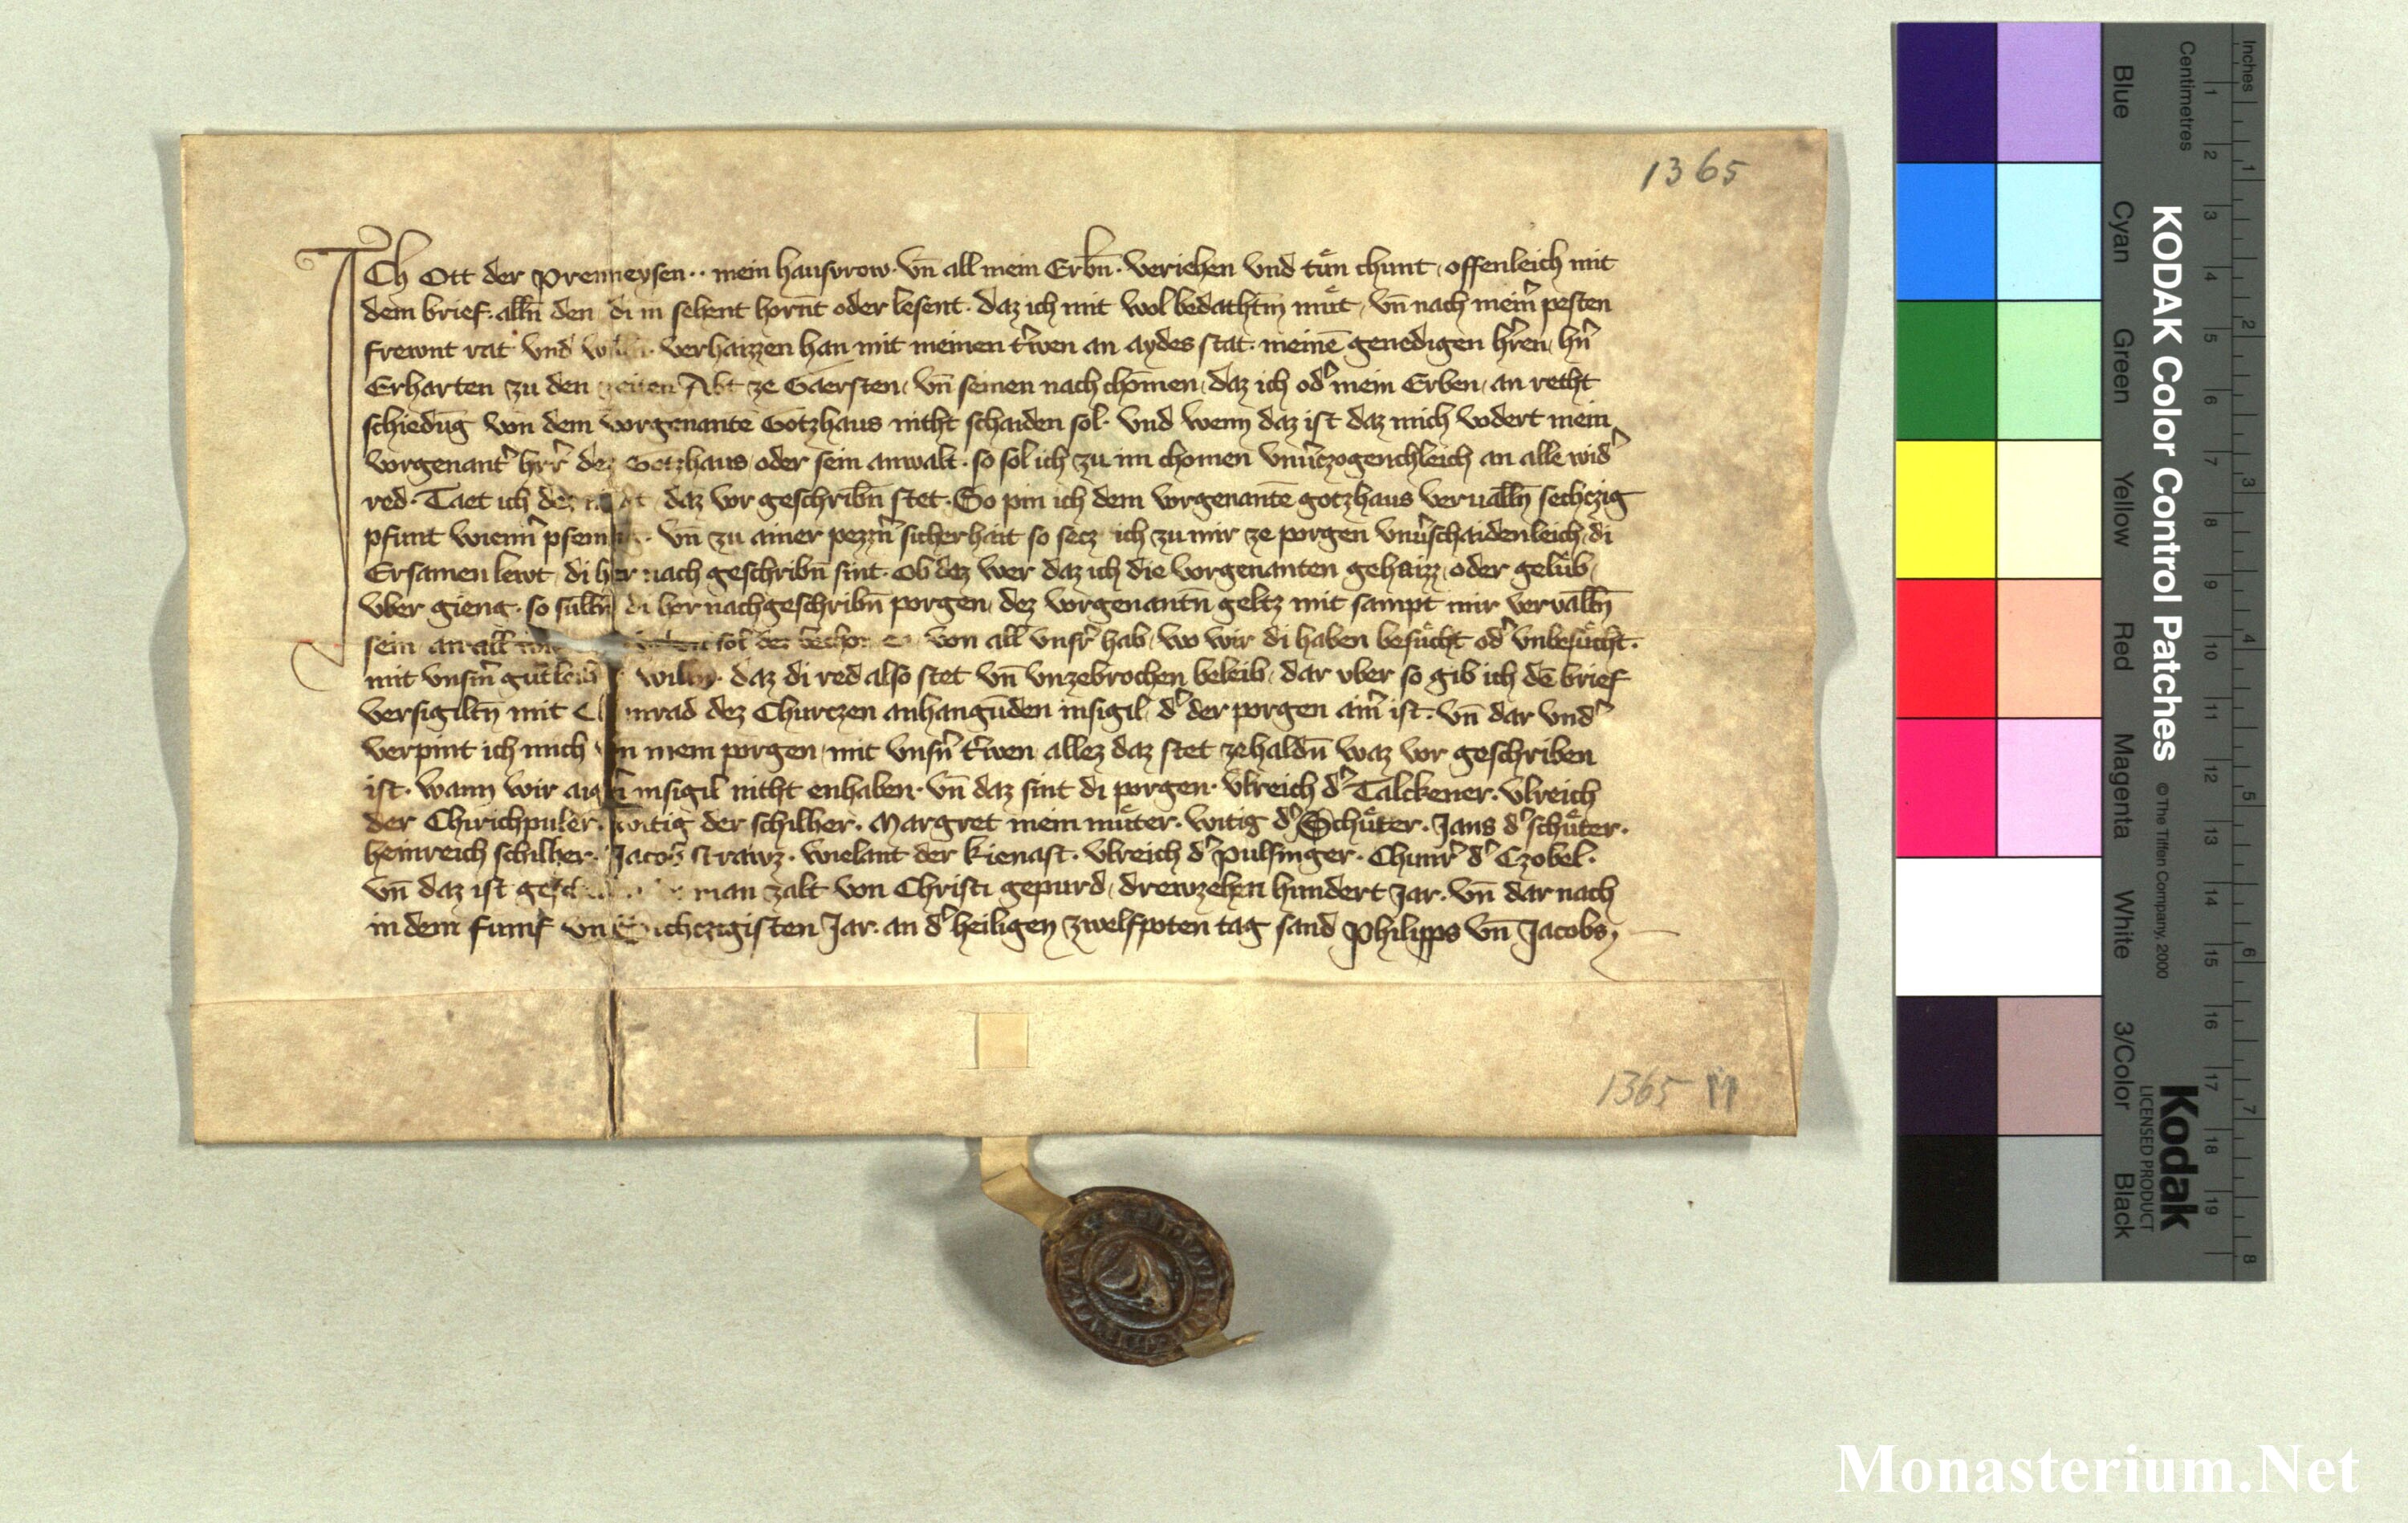 1365
ICh Ott der Prenneysen ·· mein hausvrow · vn̄ all mein Erbn̄ · veriehen vnd tuͤn chunt offenleich mit
dem brief · alln̄ den di in sehent hornt oder lesent · daz ich mit wol bedachtm̄ muͤt vn̄ nach meinr̄ pesten
frewnt rat vnd verhaizzen han mit meinen tr̄wen an aydes stat · meinē genedigen hr̄ren hn̄
Erharten zu den zeiten Abt ze Gaersten vn̄ seinen nach chomen daz ich od' mein Erben an recht
schiedūg von dem vorgenantē Gotzhaus nicht schaiden sol · vnd wenn daz ist daz mich vodert mein
vorgenant' hr̄r dez Gotzhaus oder sein anwalt · so sol ich zu im chomen vnu'czogenchleich an alle wid'
red · Taet ich dez daz vor geschribn̄ stet · So pin ich dem vorgenantē gotzhaus veruallñ sechczig
pfunt wienn' pfenn vn̄ zu ainer pezzrn̄ sicherhait so secz ich zu mir ze porgen vnu'schaidenleich di
Ersamen lewt di her nach geschribn̄ sint · Ob daz wer daz ich die vorgenanten gehaizz oder gelub
vber gieng · so sulln̄ di her nachgeschribn̄ porgen dez vorgenantn̄ geltz mit sampt mir vervalln̄
sein an all von all vnsr̄ hab wo wir di haben besuͤcht od' vnbesuͤcht ·
mit vnsrm̄ gutleich willn̄ · daz di red also stet vn̄ vnzebrochen beleib dar vber so gib ich dē brief
versigiltn̄ mit Chunrad dez Churczen anhangūden insigil d' der porgen ainr̄ ist · vn̄ dar vnd'
verpint ich mich vn mein porgen mit vnsn̄ tr̄wen allez daz stet zehaldn̄ waz vor geschriben
ist · wann wir aign̄ insigil nicht enhaben · vn̄ daz sint di porgen · vlreich d' Talckener · vlreich
der Chirichpuler · witig der schilher · Margret mein muͤter · witig d' Schuͤster · Jans d' schuͤster ·
heinreich schilher · Jacob strawz · wielant der kienast · vlreich d' pulsinger · Chunr' d' Czobel ·
vn̄ daz ist man zalt von Christi gepurd drewzehen hundert Jar · vn̄ dar nach
in dem funf vn Sechczigisten Jar · an d' heiligen zwelfpoten tag sand Philipps vn̄ Jacobs
1365
KODAK Color Control Patches
© The Tiffen Company, 2000
Kodak
LICENSED PRODUCT
Blue Cyan Green Yellow Red Magenta White 3/Color Black
Centimetres
1 2 3 4 5 6 7 8 9 10 11 12 13 14 15 16 17 18 19
Inches
1 2 3 4 5 6 7 8
Monasterium.Net